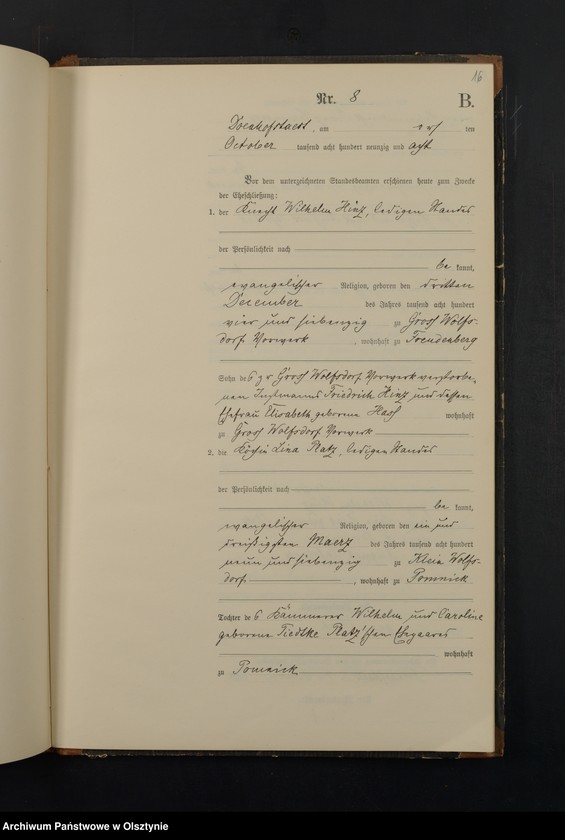 16
Nr. 8 B.
Doenhofstaedt, am elf ten
October tausend acht hundert neunzig und acht
Vor dem unterzeichneten Standesbeamten erschienen heute zum Zwecke
der Eheschließung:
1. der Knecht Wilhelm Hinz, ledigen Standes
der Persönlichkeit nach
be kannt,
evangelischer Religion, geboren den dritten
December des Jahres tausend acht hundert
vier und siebenzig zu Gross Wolfs-
dorf Vorwerk, wohnhaft zu Freudenberg
Sohn des zu Gross Wolfsdorf Vorwerk verstorbe-
nen Instmanns Friedrich Hinz und dessen
Ehefrau Elisabeth geborene Hass wohnhaft
zu Gross Wolfsdorf Vorwerk
2. die Köchin Lina Platz, ledigen Standes
der Persönlichkeit nach
be kannt,
evangelischer Religion, geboren den ein und
dreißigsten Maerz des Jahres tausend acht hundert
neun und siebenzig zu Klein Wolfs-
dorf, wohnhaft zu Pomnick
Tochter des Kämmerer Wilhelm und Caroline
geborene Tiedtke Platz'schen Ehepaares
wohnhaft
zu Pomnick
Archiwum Państwowe w Olsztynie